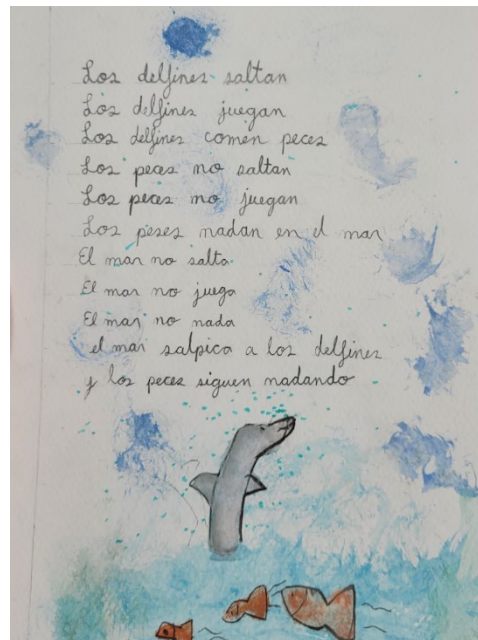 Los delfines saltan
Los delfines juegan
Los delfines comen peces
Los peces no saltan
Los peces no juegan
Los peses nadan en el mar
El mar no salta
El mar no juega
El mar no nada
el mar salpica a los delfines
y los peces siguen nadando